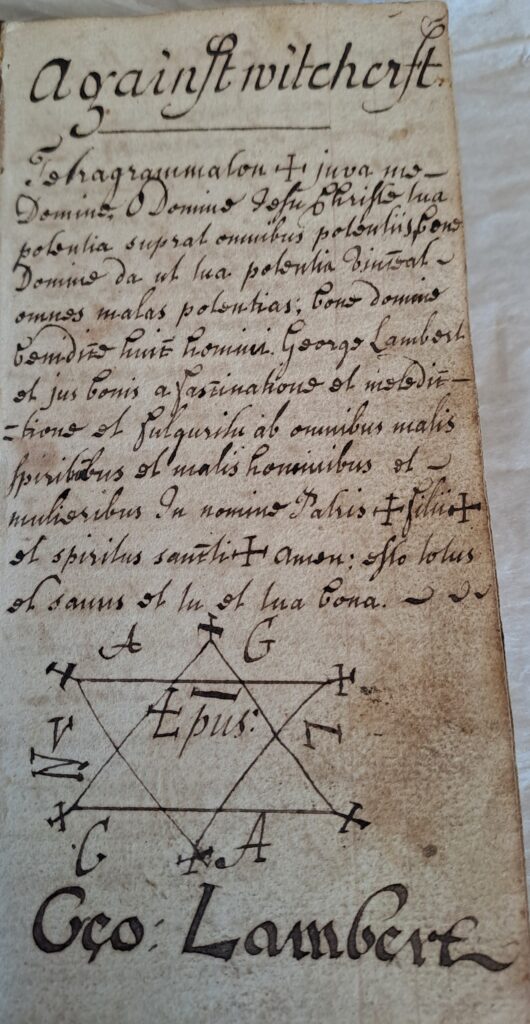 Against witchcrft
Tetragrammaton ✝ juva me
Domine, O Domine Jesu Christe tua
potentia suprat omnibus potentiis, bone
Domine da ut tua potentia vinceat
omnes malas potentias; bone domine
huic homini. George Lambert
et jus bonis a fascinatione et
=tione et fulguritu ab omnibus malis
spiritibus et malis hominibus et
mulieribus In nomine Patris ✝ filii ✝
et spiritus sancti ✝ Amen: esto totus
et sanus et tu et tua bona.
A G
pus:
L
A
N
G A
Geo: Lambert